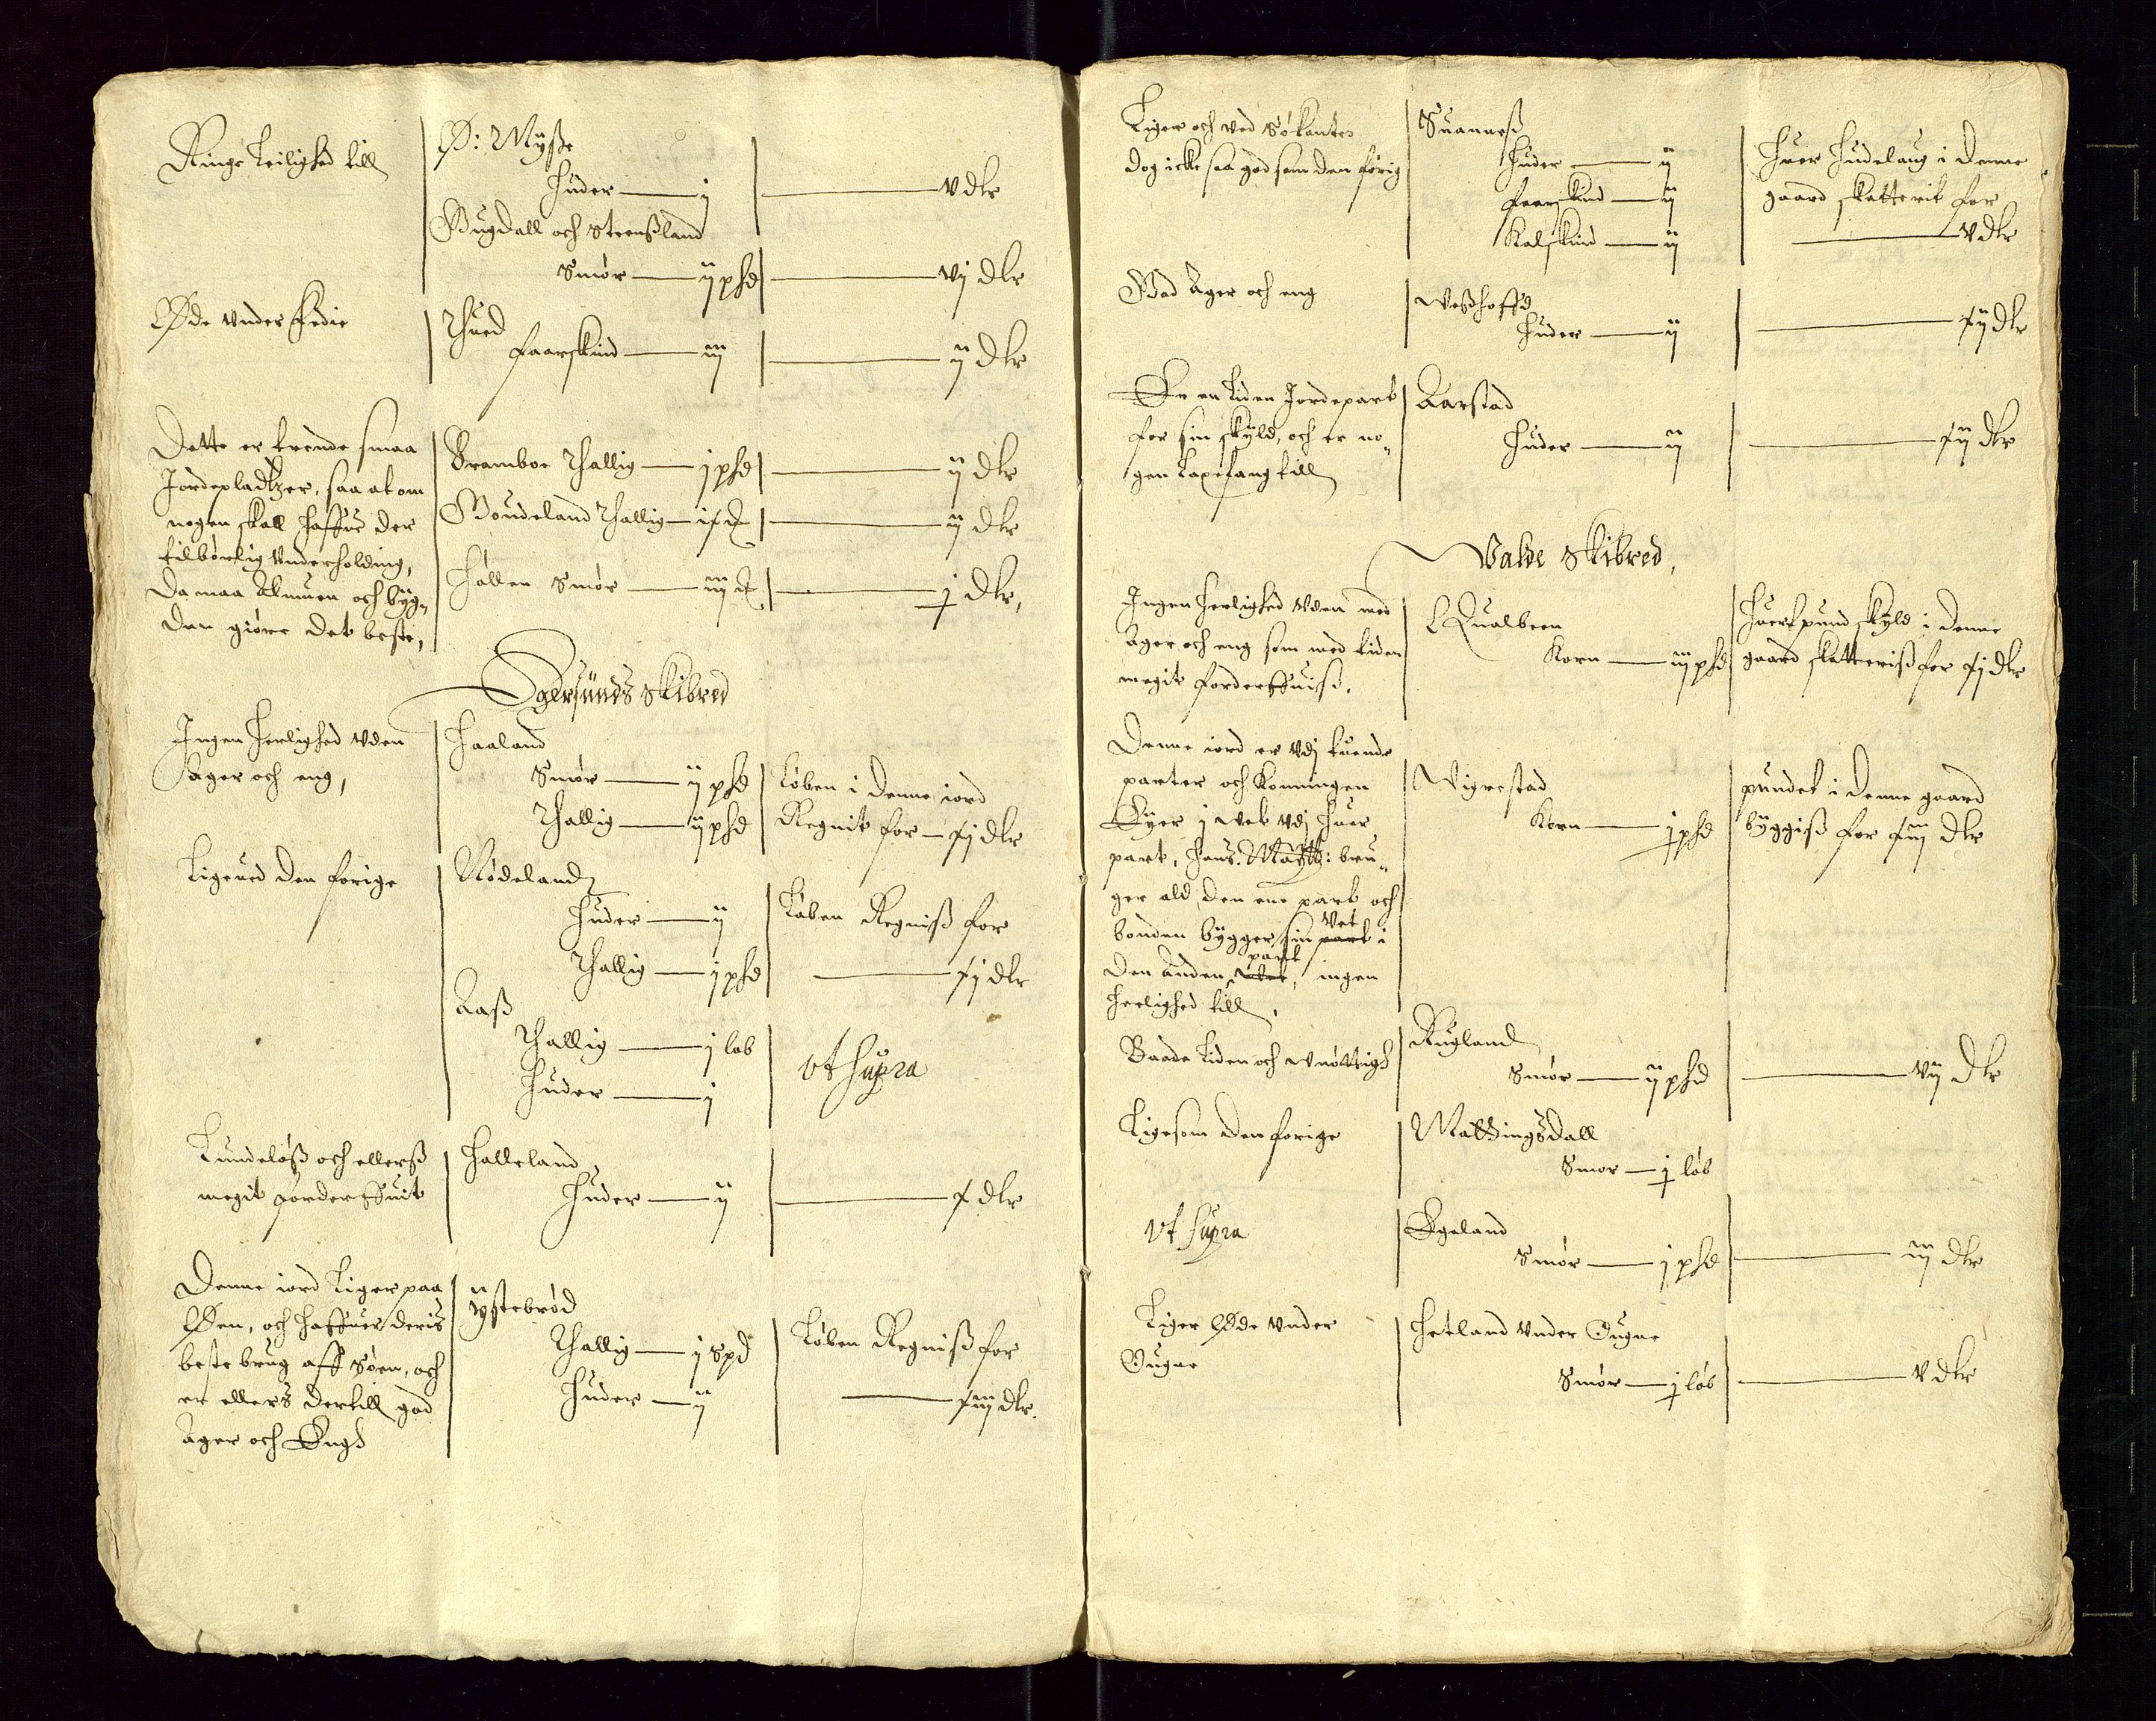 Ringe Leilighed till
Ø: Mysse
Huder — j — v dlr
Bugdall och Steenssland
Smør — ij psd — vj dlr
Øde vnder Fedie
Thued
Faarskind — iij — ij dlr
Dette er trende smaa
Jordepladtzer, saa at om
nogen skall haffue der
tilbørlig vnderholding,
da maa Almuen och byg„
den giøre det beste,
Bramboe Thallig — j psd — ij dlr
Boudeland Thallig — — ij dlr
Høllen Smør — iij — j dlr,
Egersunds Skibred
Ingen herlighed vden
ager och eng,
Haaland
Smør — ij psd
Thallig — ij psd
Løben i denne jord
Regnit for — xj dlr
Ligeued den forige
Nødeland
Huder — ij
Thallig — j psd
Løben Regniss for
— xj dlr
Aass
Thallig — j lob
Huder — j
vt supra
Lundeløss och ellerss
megit forderffuit
Halleland,
Huder — ij — x dlr
Denne jord liger paa
Øen, och haffuer deris
beste brug aff Søen, och
er ellers dertill god
Ager och Engh
Ystebrød
Thallig — j spd
Huder — ij
Løben Regniss for
— xiij dlr.
Liger och ved Søkanten
dog icke saa god som den førig
Suanæss
Huder — ij
Faarskind — ij
Kalskind — ij
Huer Hudelaug i denne
gaard skatterit for
— v dlr
God Ager och eng
Wesshoffd
Huder — ij — xij dlr
Er en liden Jordepart
for sin skyld, och er no„
gen Laxefang till
Aarstad
Huder — ij — xij dlr
Walde Skibred,
Ingen herlighed vden med
Ager och eng som med tiden
megit forderffuiss.
Qualbeen
Korn — iij psd
Huert pund skyld i denne
gaard skatteriss for xj dlr
Denne jord er vdj tuende
parter och Konningen
Eyer j vet vdj huer
part, Hans. Maytt: bru„
ger ald den ene part och
vet
bonden bygger sin part i
part
den anden vet, ingen
herlighed till.
Wigrestad
Korn — j psd
pundet i denne gaard
byggiss for xiij dlr
Baade liden och vnøttigh
Rugland
Smør — ij psd — vij dlr
Ligesom den forige
Mattingsdall
Smør — j løb
vt supra
Egeland
Smør — j psd — iij dlr
Liger Øde vnder
Ougne
Hetland vnder Ougne
Smør — j løb — v dlr